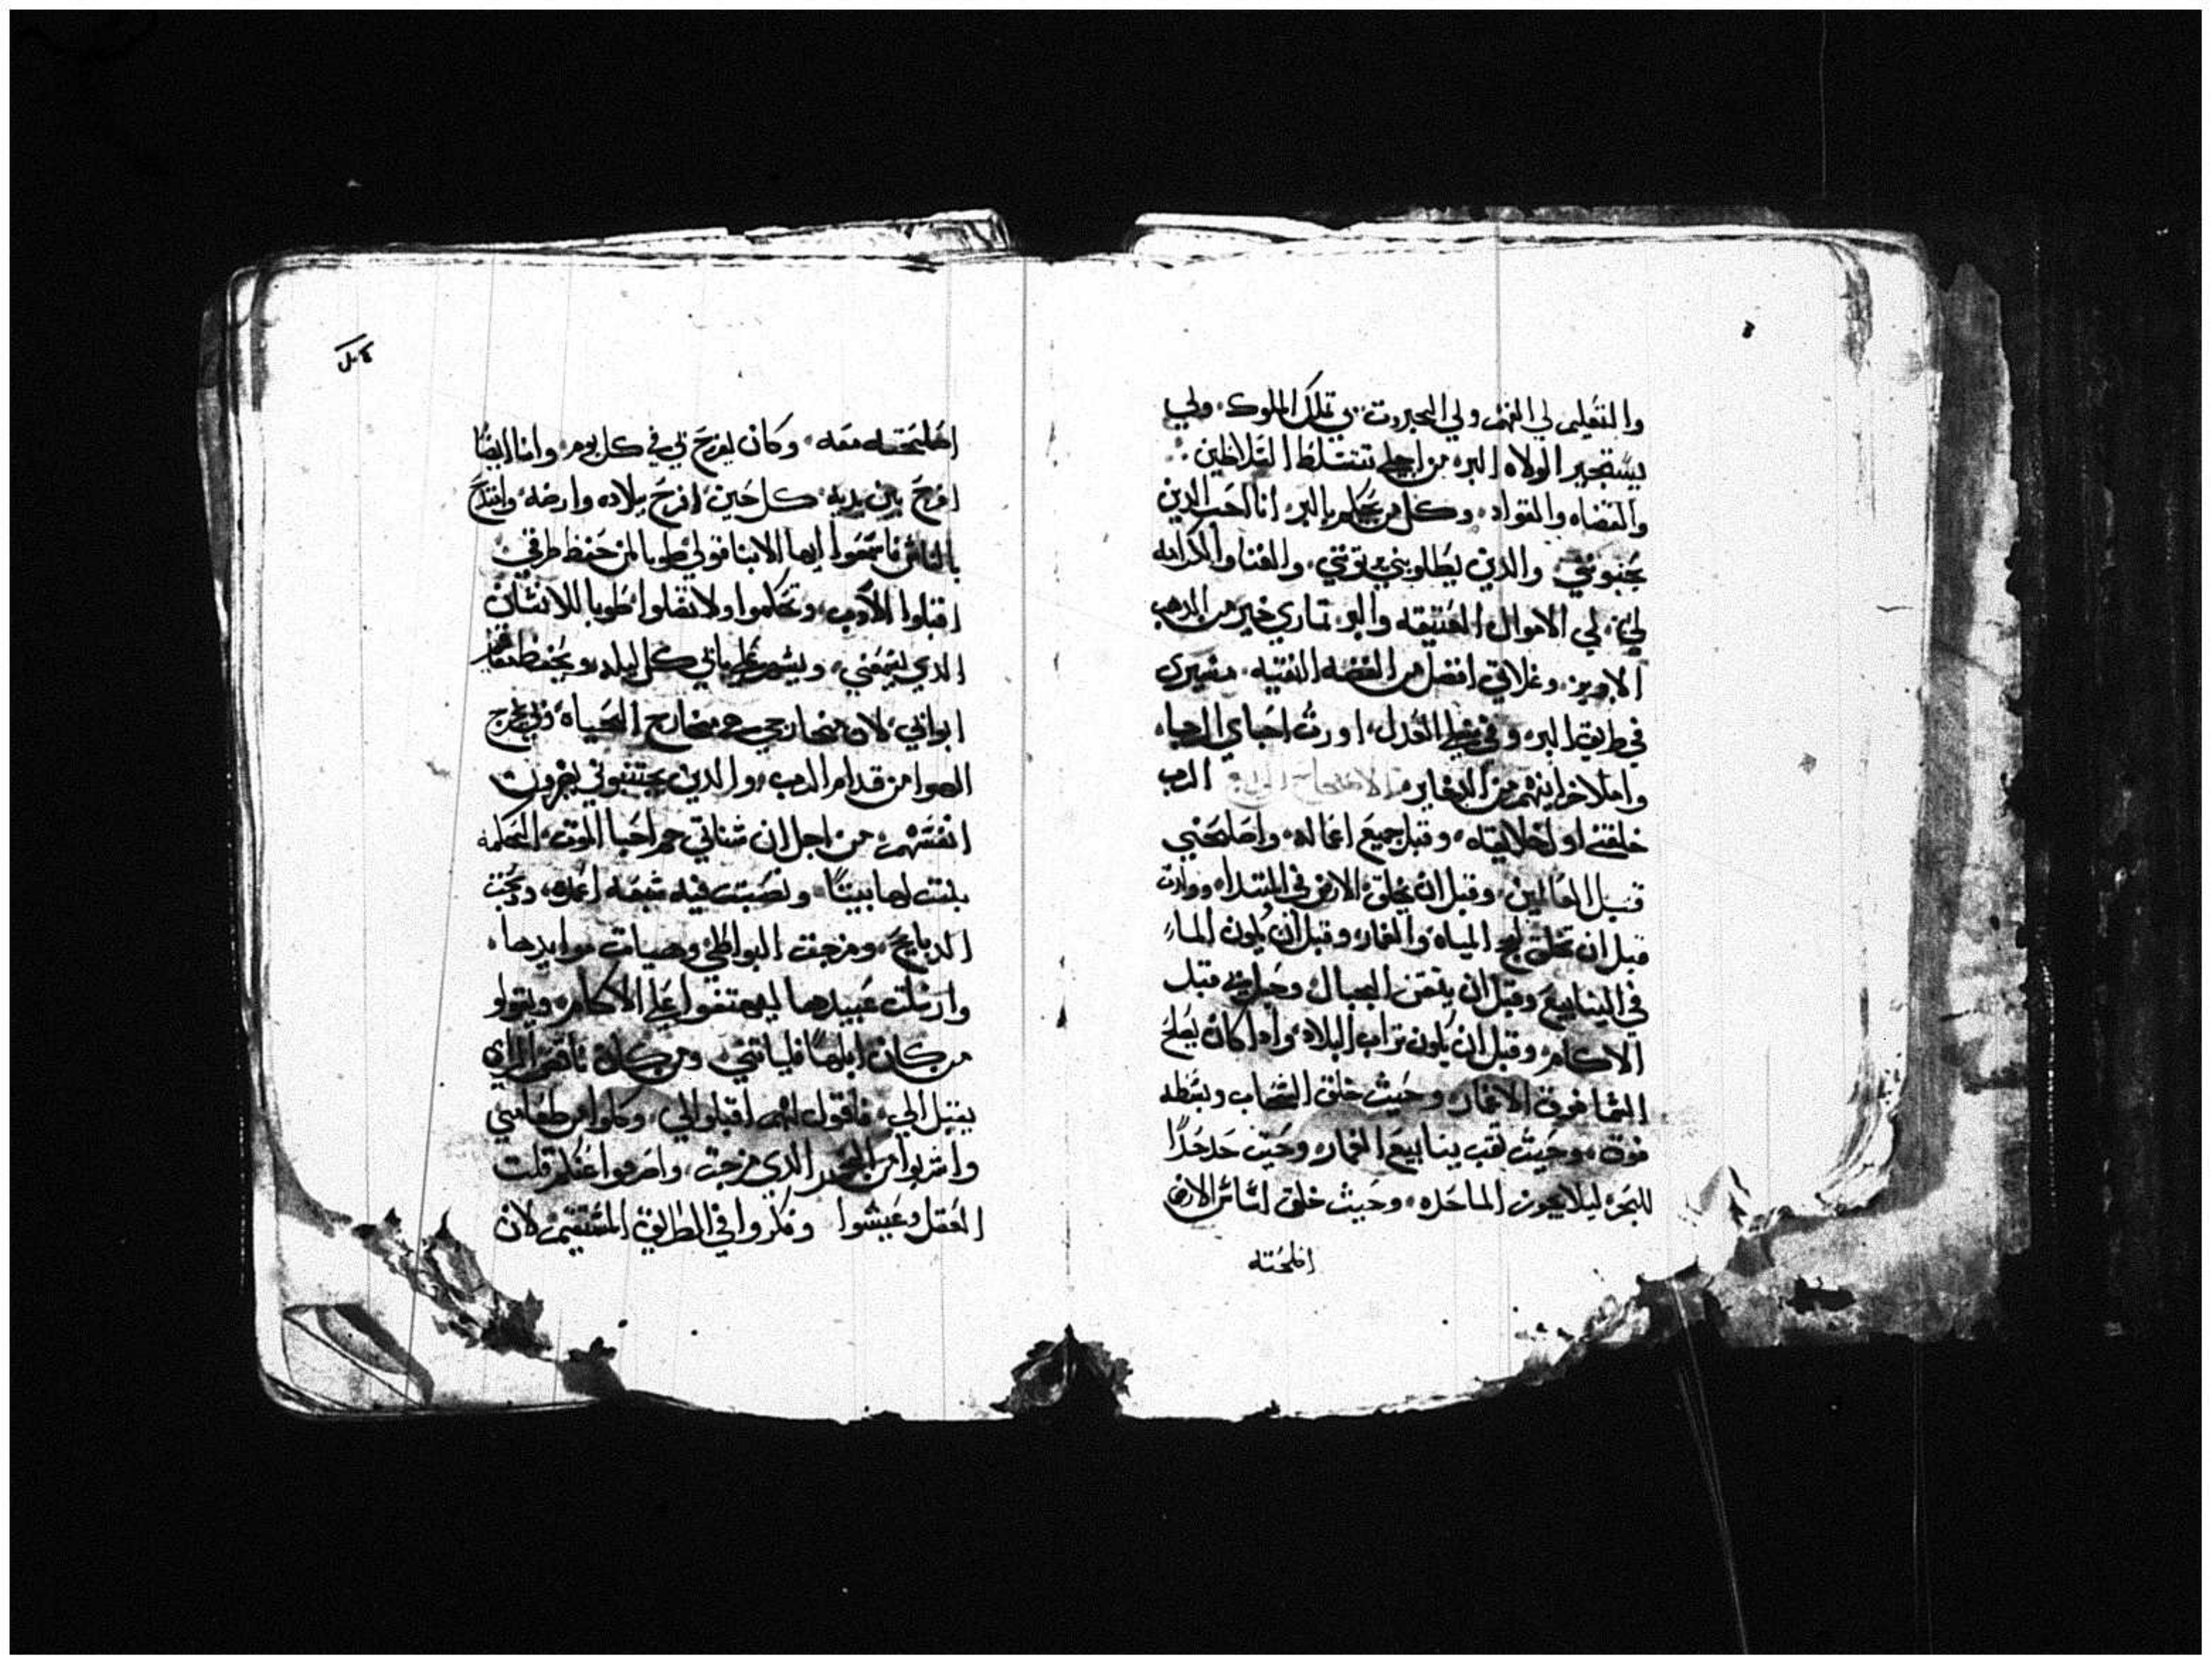 والتعليم لي الفهم ولي الجبروت بي تملك الملوك ولي
يستجير الولاه البر من اجلي تتسلط السلاطين
والقضاه والقواد وكل من يحكم بالبر انا احب الدين
يحبوني والدين يطلوبني توتني والغنا والكرامه
لي لي الاموال العتيقه والبر تماري خير من الدهب
الابريز وغلاتي افضل من الفضه النقيه مسيري
في طريق البر وفي العدل اورت احباي الرجاء
واملا خزاينهم من الدخاير الاصحاح الرابع الرب
خلقني اول خلايقه وقبل جميع اعماله واصلحني
قبل العالمين وقبل ان يخلق الارض في المبتدا وولدت
قبل ان يخلق لجج المياه والغمار وقبل ان يكون الماء
في الينابيع وقبل ان يتقن الجبال وحبل بي قبل
الاكام وقبل ان يكون تراب البلاد واد اكان يصلح
السما فوق الاغمار وحيث خلق السحاب وبسطه
فوق وحيث تقب ينابيع الغمار وحيث حد حدًا
للبحر ليلا يجوز الما حده وحيث خلق اساس الارض
اصلحته
اصلحته معه وكان يفرح بي في كل يوم وانا ايضًا
افرح بين يديه كل حين افرح ببلاده وارضه وابتدح
بالناس فاسمعوا ايها الابنا قولي طوبا لمن حفظ طرقي
اقبلوا الادب وتحكموا ولا تضلوا طوبا للانسان
الدي يسمعني ويسهر علي بابي كل ليله ويحفظ
ابوابي لان مخارجي هي مخارج الحياه وبي يخرج
الهوا من قدام الرب والدين يجتنبوني يضرون
انفسهم من اجل ان شناتي هم احبا الموت الحكمه
بنت لها بيتًا ونصبت فيه سبعه اعمده ودبحت
الدبايح ومزجت البواطي وهيات موايدها
وارسلت عبيدها ليهتفوا علي الاكام ويقولو
من كان ابلهًا فلياتني ومن كان ناقص الراي
يقبل الي فاقول لهم اقبلوا الي وكلوا من طعامي
واشربوا من الخمر الدي مزجت واصرفوا عنكم قلت
العقل وعيشوا وفكروا في الطريق المستقيم لان